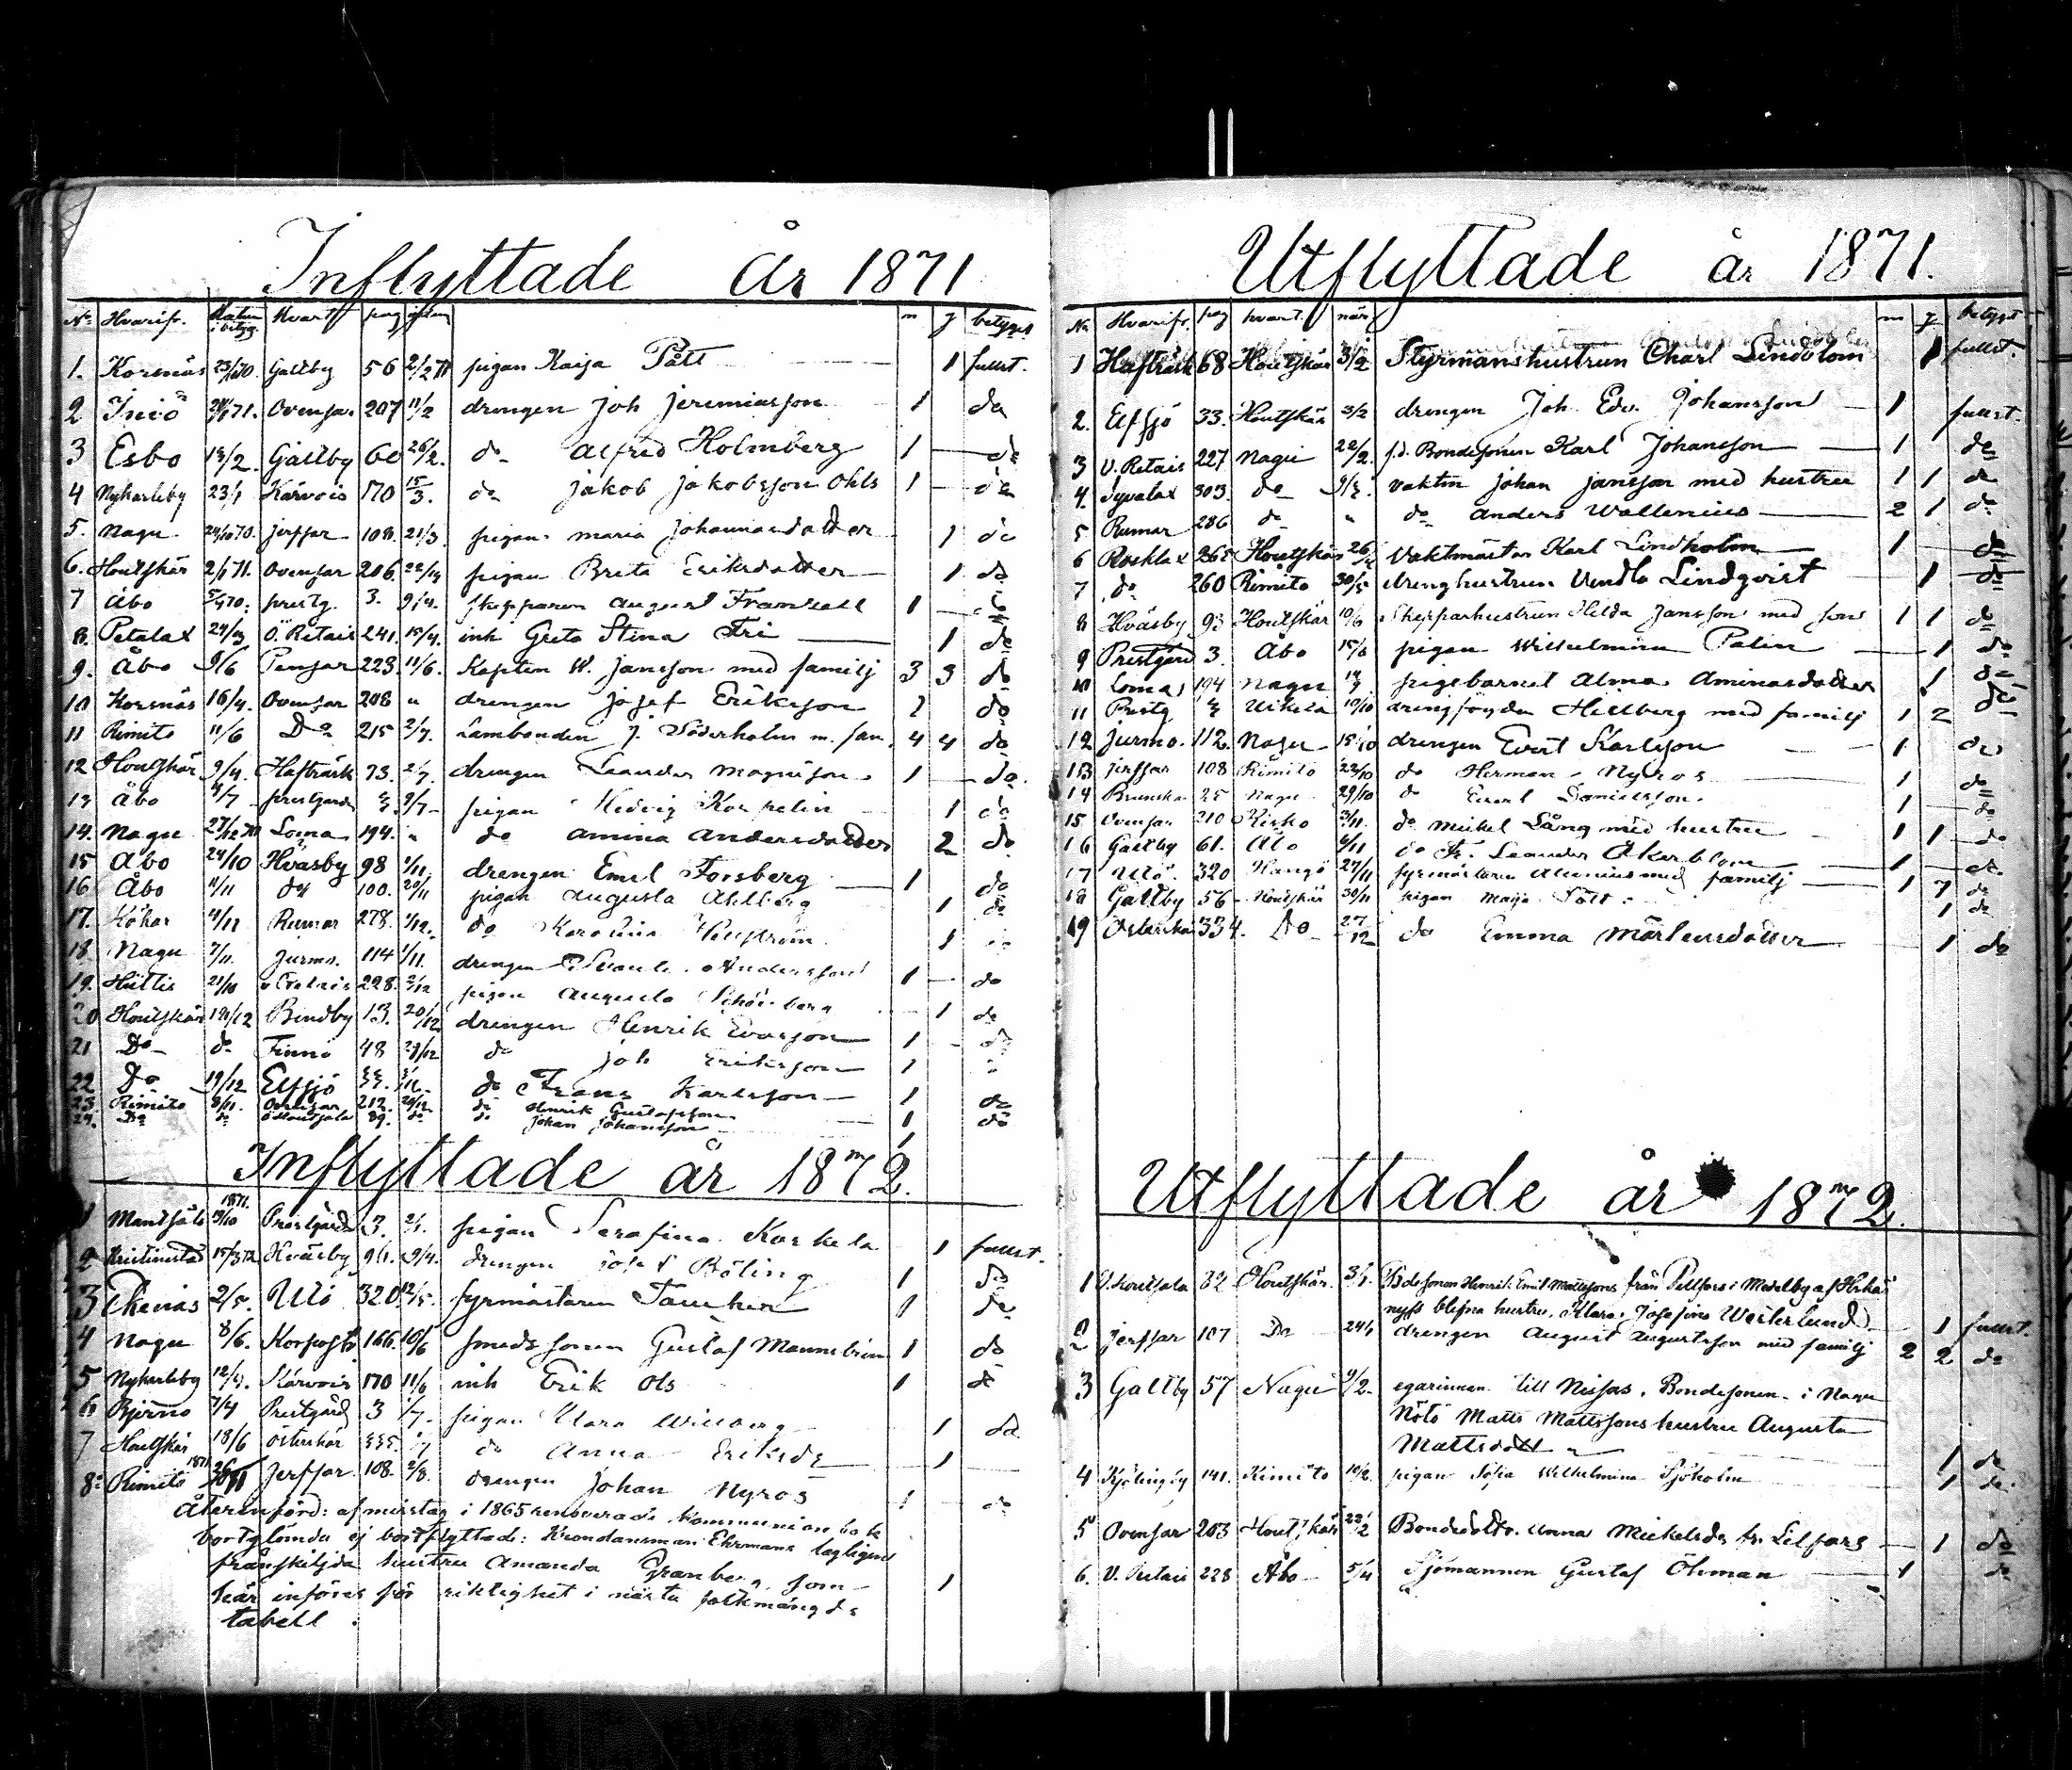 Inflyttade År 1871
No Hvarifr. Datum i betyg. Hvart pag m q betyget
1. Korsnäs 23/1 70. Galtby 56 2/2 71 pigan Kaija Pått 1 fullst.
2 Iniö 71. Ovensar 207 11/2 drengen Joh Jeremiasson 1 do
3 Esbo 13/2. Galtby 60 26/2. do Alfred Holmberg 1 — do
4 Nykarleby 23/1 Kärvois 170 15/3. do Jakob Jakobsson Ohls 1 — do
5. Nagu 24/10 70. Jerfsar 108. 21/3. pigan maria Johannesdotter 1 do
6. Houtskär 2/1 71. Ovensar 206. pigan Brita Eriksdotter 1 do
7 Åbo prestg. 3. 9/4. skepparen August Framsell 1 — do
8. Petalax Ö. Retais 241. 15/4. inh Greta Stina Fri 1 do
9. Åbo 9/6 Pensar 223. 11/6. Kapten W. Jansson med familj 3 3 do
10 Korsnäs 16/4. Ovensar 208 " drengen Josef Eriksson 1 do
11 Rimito 11/6 Do 215 2/7. Lambonden J. Söderholm m. fam. 4 4 do
12 Houtskär 9/4. Hafträsk 73. 2/7. drengen Leander Magnusson 1 — do.
13 Åbo 4/7 prestgård 3 9/7 pigan Hedvig Korpelin 1 do
14. Nagu 27/12 70 Loma 194. " do Amina Andersdotter 2 do
15 Åbo 24/10 Hväsby 98 1/11. drengen Emil Forsberg 1 do
16 Åbo 11/11 do 100. 20/11 pigan Augusta Ahlberg 1 do
17. Kökar 4/11 Rumar 278. 1/12. do Karolina 1
18 Nagu 7/11. Jurmo. 114 1/11. drengen Andersson 1 — do
19. Hittis 21/10 Retais 228. 2/12 pigan Augusta 1 do
20 Houtskär 12/12 Bendby 13. 20/12 drengen Henrik Evarsson 1 do
21 Do do Finnö 48 29/12 do Joh Eriksson 1 "
22 Do 19/12 Elfsjö 33. do Frans Karlsson 1 do
23. Rimito 8/11. Ovensar 212. 20/12 do Henrik Gustafsson 1 do
24. Do do 89. do do Johan Johansson 1
Inflyttade år 1872.
1871.
1 Mantsälä 19/10 Prestgård 3. 2/1. pigan Serafina Korkela 1 fullst.
2 Kristinestad 15/3 72 Hväsby 91. 9/4. drengen Josef Böling 1 do
3 Ekenäs 2/5. Utö 320. 12/5. fyrmästaren Taucher 1 do
4 Nagu 8/6. Korpogst. 166. 10/6 smedssonen Gustaf Mannström 1 do
5 Nykarleby 12/4. Kärvois 170 11/6 inh Erik Ols 1 do
6 Bjerno 7/4 Prestgård 3 1/7. pigan Klara Willberg 1 do
7 Houtskär 18/6 Österskär 335. do Anna Eriksdr 1
8: Rimito 1871 Jerfsar. 108. 2/8. drengen Johan Nyros 1 do
Återinförd: af misstag i 1865 renoverade Kommunion bok
bortglömda ej bortflyttade: Krondansman Ehrmans lagligen
frånskiljda hustru Amanda Granberg, som 1
här införes för riktighet i nästa folkmängds
tabell.
Utflyttade år 1871.
No Hvarifr. pag hvart. när m q betyget
1 Hafträsk 68 Houtskär 3/2 Styrmanshustrun Charl Lindblom 1 fullst.
2. Elfsjö 33. Houtskär 3/2 drengen Joh. Edv. Johansson 1 fullst.
3 V. Retais 227 Nagu 22/2. f.d. Bondesonen Karl Johansson 1 do
4. Dyvalax 303. do 9/3. vaktm Johan Jansson med hustru 1 1 do
5 Rumar 286 do " do Anders Wallenius 2 1 do
6 Rosklax 265 Houtskär vaktmästar Karl Lindholm 1 do
7 do 260 Rimito 30/5 drenghustrun Vendla Lindqvist 1 do
8 Hväsby 93 Houtskär 10/6 Skepparhustrun Hilda Jansson med son 1 1 do
9 Prestgård 3. Åbo 15/6 pigan Wilhelmina Palin 1 do
10 Loma 194 Nagu pigebarnet Alma Aminasdotter 1 do
11 Prestg 3 10/10 drengfogden Hellberg med familj 1 2 do
12 Jurmo. 112. Nagu 15/10 drengen Evert Karlsson 1 do
13 Jerfsar 108 Rimito 22/10 do Herman Nyros 1 do
14 Brunskär 25 Nagu 29/10 do Danielsson. 1 do
15 Ovensar 210 Kisko 3/11. do Mickel Lång med hustru 1 1 do
16 Galtby 61. Åbo 6/11 do Fr. Leander Åkerblom 1 do
17 Utö. 320 Hangö 27/11 fyrmästaren med familj 1 7 do
18 Galtby 56 Houtskär 30/11 pigan Maija Pått 1 do
19 Österskär 334. Do 27/12 do Emma Mårtensdotter 1 do
Utflyttade år 1872.
1 V. Houtsala 82 Houtskär. 3/1. Bdesonen Henrik Emil Mattssons från Pellfars i Medelby af Htskär
nyss blefna hustru, Klara Josefina Westerlund 1 fullst.
2 Jerfsar 107 Do 24/1 drengen August Augustsson med familj 2 2 do
3 Galtby 57 Nagu 9/2. egarinnan till Nissas, Bondesonen i Nagu
Nötö Matts Mattssons hustru Augusta
Mattsdott 1 do
4 Kjälingby 141. Kimito 10/2. pigan Sofia Wilhelmina Sjöholm 1 do.
5 Ovensar 203 Houtskär 22/2 Bondedottr. Anna Mickelsdr fr. Lillfars 1 do
6. V. Retais 228 Åbo 5/4 Sjömannen Gustaf Öhman 1 do